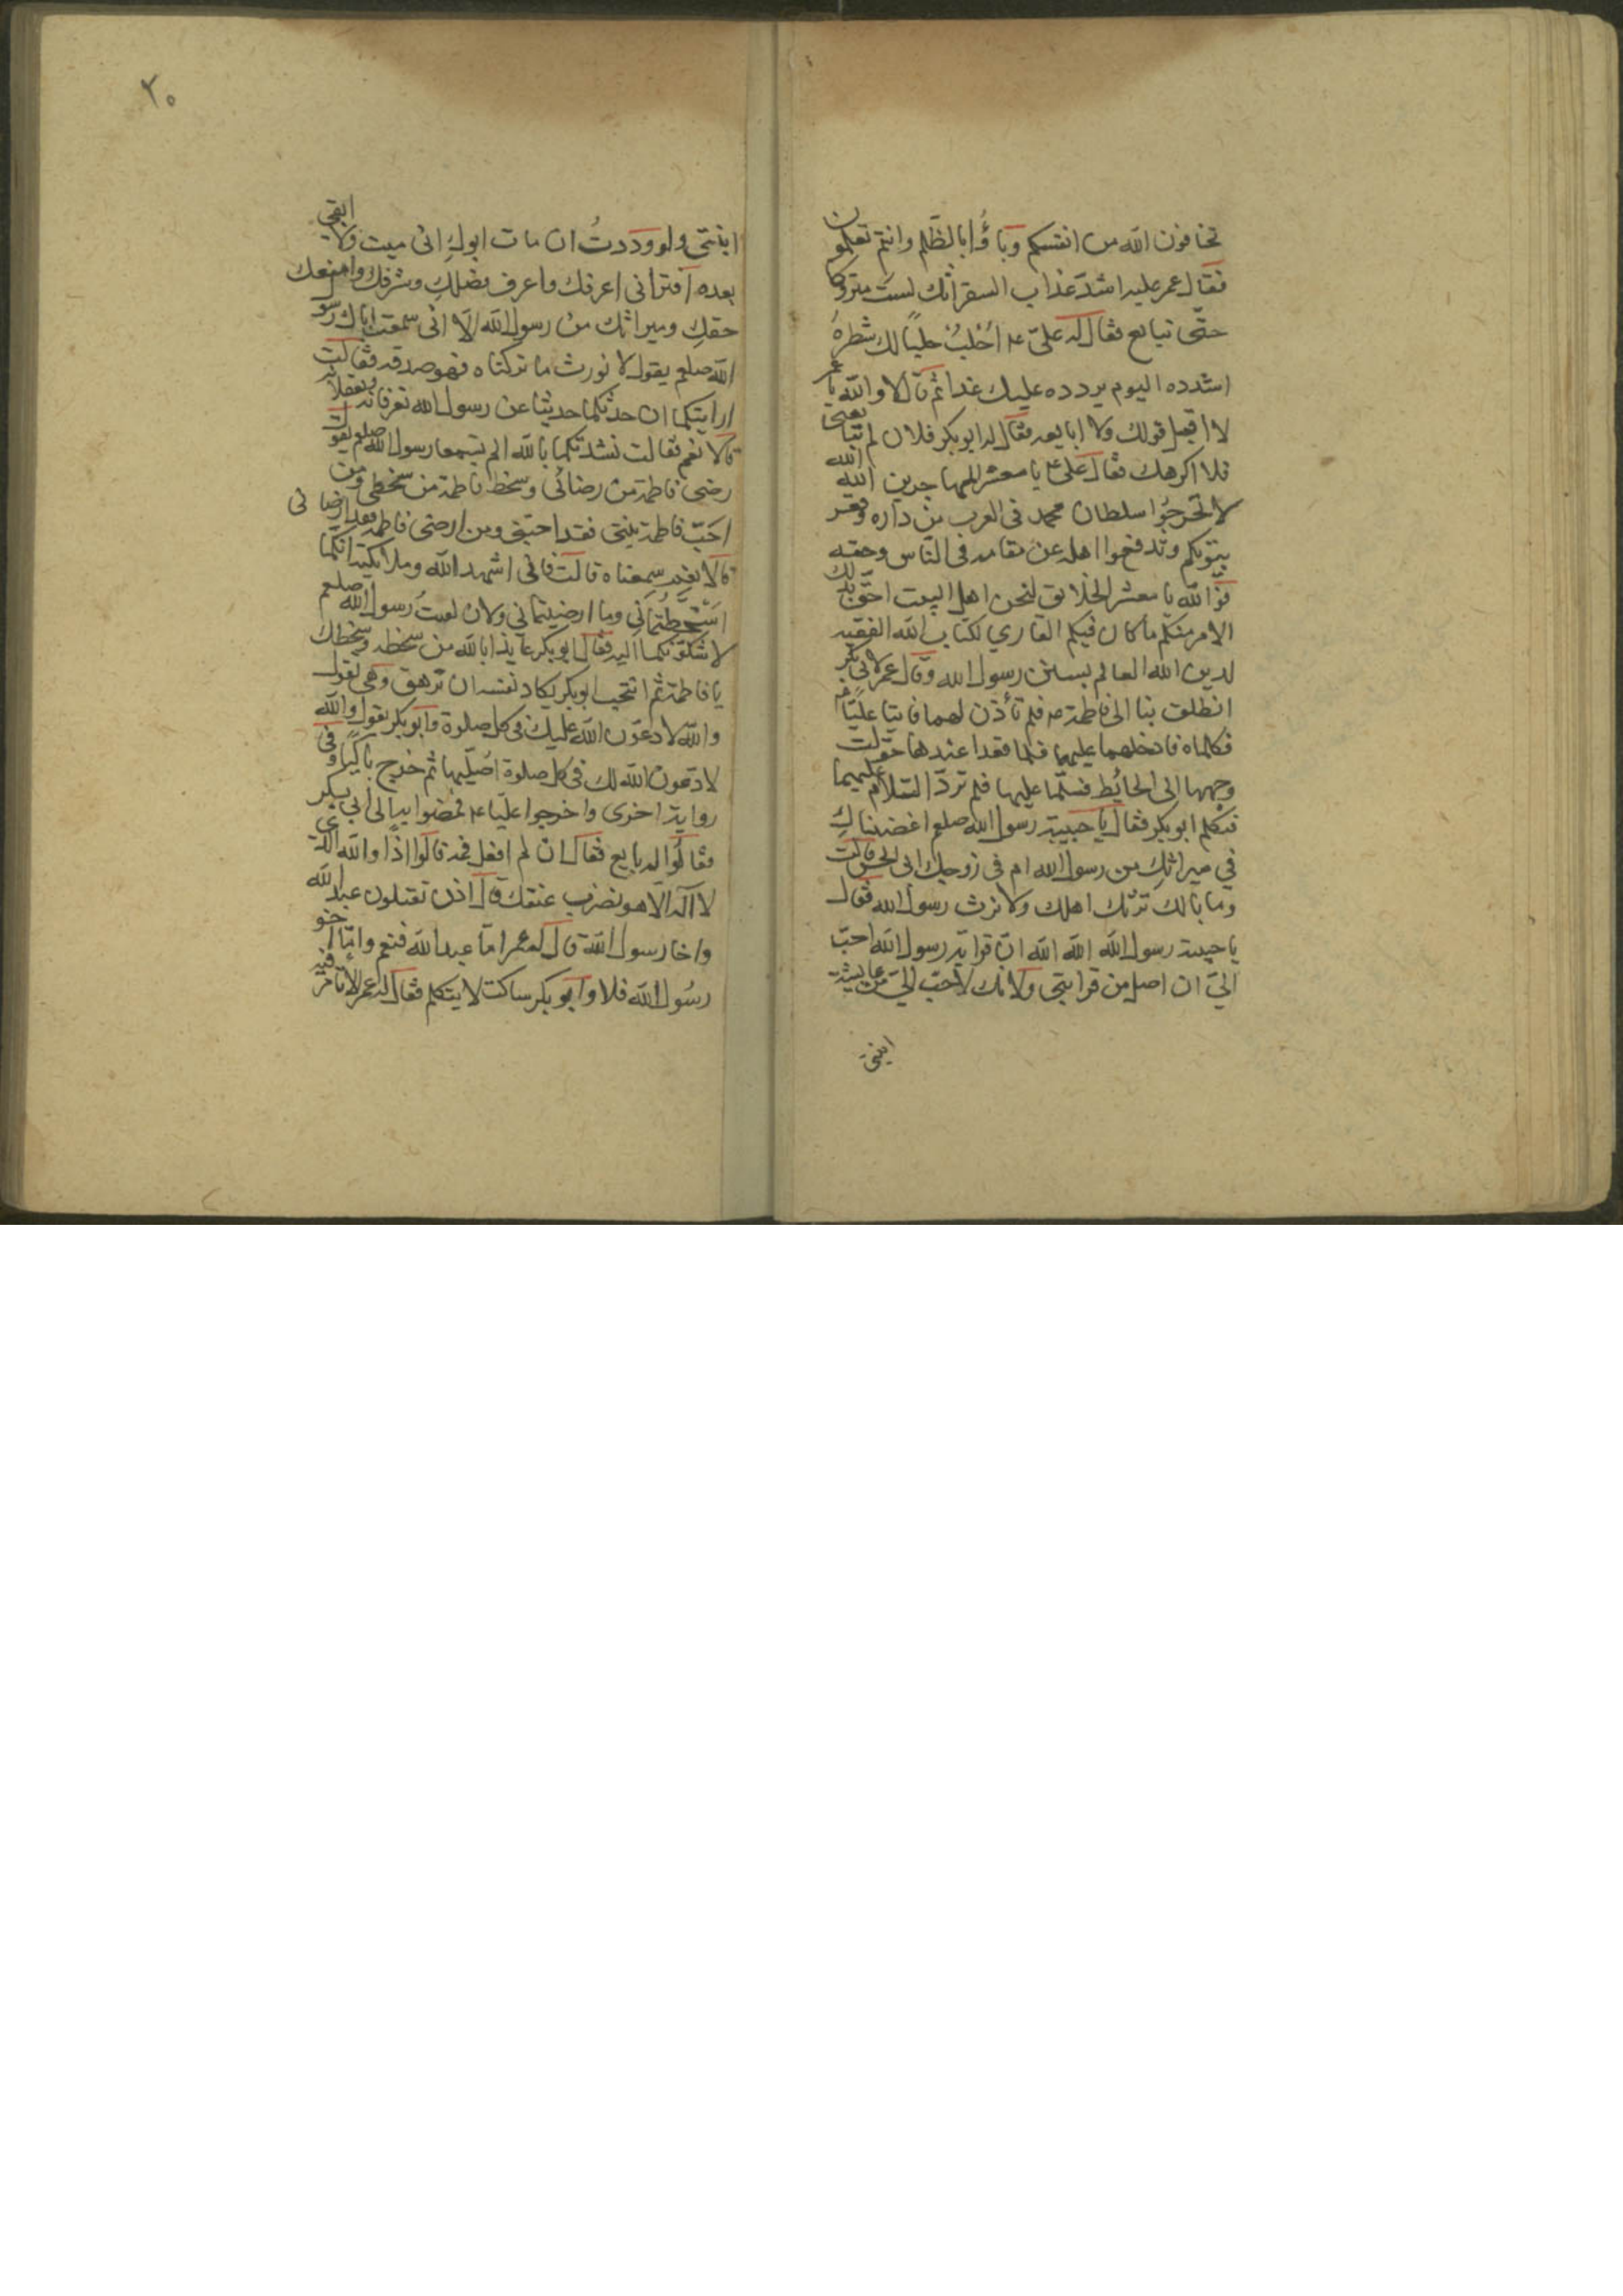 تخافون الله من انفسكم وباؤا بالظلم وانتم تعلمون
فقال عمر عليه اشد عذاب السقر انك لست متروكا
حتى تبايع فقال له على ع م احلب حلبا لك شطره
اشدده اليوم يردده عليك غدا ثم قال لا والله يا عمر
لا اقبل قولك ولا ابايعه فقال له ابو بكر فلان لم تبايعنى
فلا اكرهك فقال على ع يا معشر المهاجرين الله الله
لا تخرجوا سلطان محمد فى العرب من داره وقعر
بيتوتكم وتدفعوا اهله عن مقامه فى الناس وحقه
فوالله يا معشر الخلايق لنحن اهل البيت احق بذلك
الامر منكم ما كان فيكم القاري لكتاب الله الفقيه
لدين الله العالم بسنن رسول الله وقال عمر لابى بكر
انطلق بنا الى فاطمة ع م فلم تأذن لهما فاتيا عليا ع م
فكلماه فادخلهما عليها فلما قعدا عندها حولت
وجهها الى الحائط فسلما عليها فلم ترد السلام عليهما
فتكلم ابو بكر فقال يا حبيبة رسول الله صلعم اغضبناك
في ميراثك من رسول الله ام فى زوجك ابى الحسن قالت
وما بالك ترثك اهلك ولا نرث رسول الله فقال
يا حبيبة رسول الله الله الله ان قرابة رسول الله احب
الي ان اصل من قرابتى ولانك لاحب الي من عايشة
ابنتى
٢٠
ابنتى ولو وددت ان مات ابوك انى ميت ولا ابقى
بعده افترانى اعرفك واعرف فضلك وشرفك وامنعك
حقك وميراثك من رسول الله الا انى سمعت اباك رسو
الله صلعم يقول لا نورث ما تركناه فهو صدقة فقالت
ارايتكما ان حدثتكما حديثا عن رسول الله تعرفانه وتعقلانه
قالا نعم فقالت نشدتكما بالله الم تسمعا رسول الله صلعم يقول
رضى فاطمة من رضائى وسخط فاطمة من سخطى ومن
احب فاطمة بنتى فقد احبنى ومن ارضى فاطمة فقد ارضانى
قالا نعم سمعناه قالت فانى اشهد الله وملايكته انكما
اسخطتمانى وما ارضيتمانى ولان لقيت رسول الله صلعم
لاشكونكما اليه فقال ابو بكر عايذا بالله من سخطه وسخطك
يا فاطمة ثم انتحب ابو بكر يكاد نفسه ان تزهق وهى تقول
والله لادعون الله عليك فى كل صلوة وابو بكر يقول والله
لادعون الله لك فى كل صلوة اصليها ثم خرج باكيا وفى
رواية اخرى واخرجوا عليا ع م فمضوا به الى ابى بكر
فقالوا له بايع فقال ان لم افعل فمه قالوا اذا والله الذى
لا اله الا هو نضرب عنقك قال اذن تقتلون عبد الله
واخا رسول الله قال له عمر اما عبد الله فنعم واما اخو
رسول الله فلا وابو بكر ساكت لا يتكلم فقال له عمر الا تامر فيه